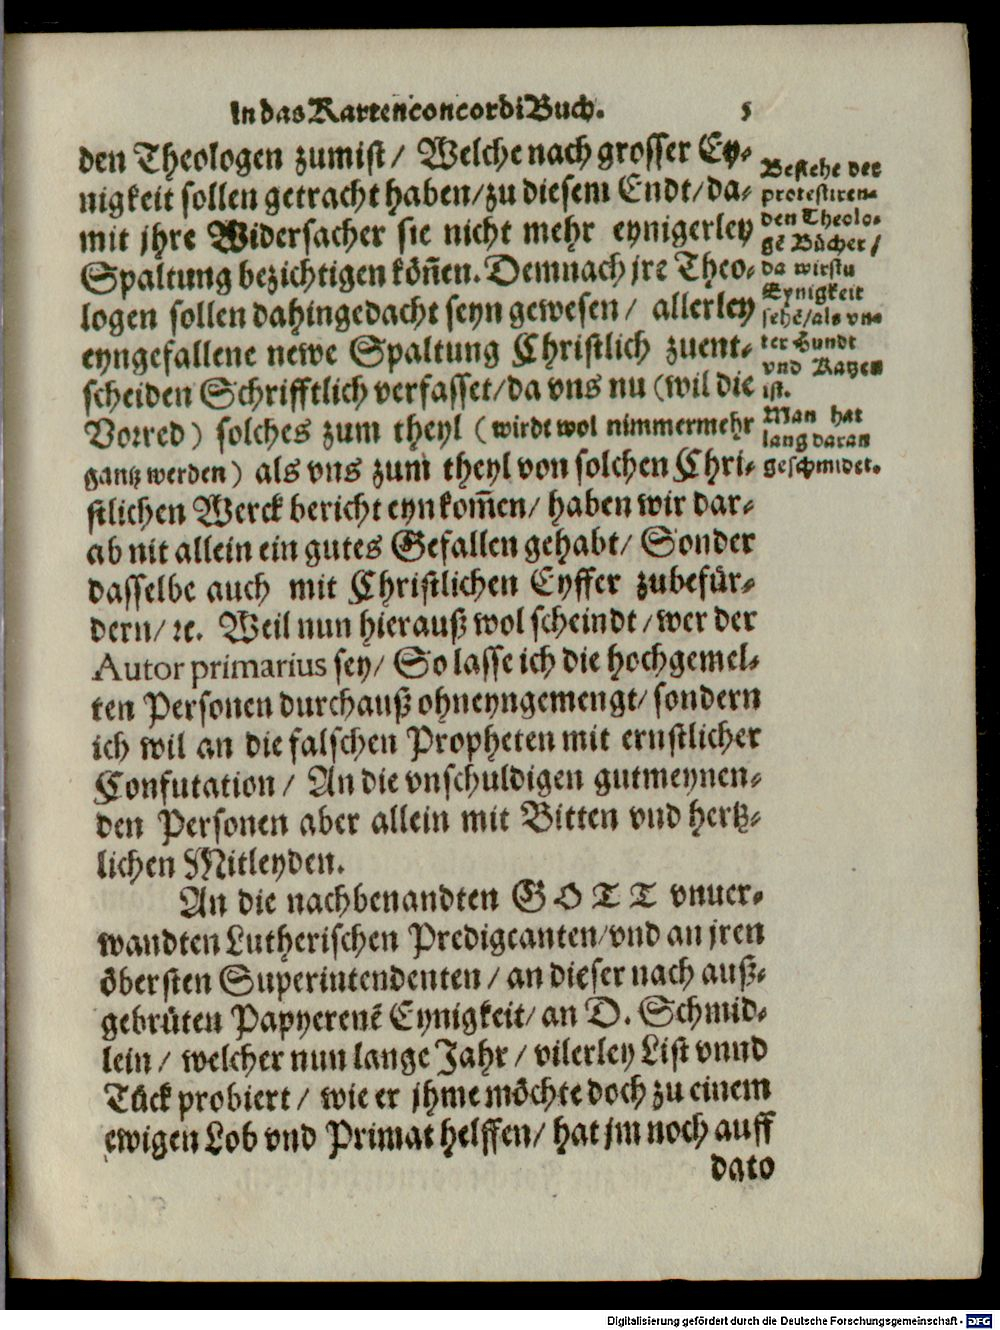 In das KartenconcordiBuch. 5
den Theologen zumist / Welche nach grosser Ey⸗
nigkeit sollen getracht haben / zu diesem Endt / da⸗
mit jhre Widersacher sie nicht mehr eynigerley
Spaltung bezichtigen köñen. Demnach jre Theo⸗
logen sollen dahin gedacht seyn gewesen / allerley
eyngefallene newe Spaltung Christlich zuent⸗
scheiden Schrifftlich verfasset / da vns nu (wil die
Vorred) solches zum theyl (wirdt wol nimmermehr
gantz werden) als vns zum theyl von solchen Chri⸗
stlichen Werck bericht eynkom̃en / haben wir dar⸗
ab nit allein ein gutes Gefallen gehabt / Sonder
dasselbe auch mit Christlichen Eyffer zubefür⸗
dern / ꝛc. Weil nun hierauß wol scheindt / wer der
Autor primarius sey / So lasse ich die hochgemel⸗
ten Personen durchauß ohneyngemengt / sondern
ich wil an die falschen Propheten mit ernstlicher
Confutation / An die vnschuldigen gutmeynen⸗
den Personen aber allein mit Bitten vnd hertz⸗
lichen Mitleyden.
An die nachbenandten GOTT vnuer⸗
wandten Lutherischen Predigcanten / vnd an jren
öbersten Superintendenten / an dieser nach auß⸗
gebrüten Papyerenẽ Eynigkeit / an D. Schmid⸗
lein / welcher nun lange Jahr / vilerley List vnnd
Tück probiert / wie er jhme möchte doch zu einem
ewigen Lob vnd Primat helffen / hat jm noch auff
dato
Besiehe der
protestiren⸗
den Theolo⸗
gẽ Bücher /
da wirstu
Eynigkeit
sehẽ / als vn⸗
ter Hundt
vnd Katzen
ist.
Man hat
lang daran
geschmidet.
Digitalisierung gefördert durch die Deutsche Forschungsgemeinschaft - DFG